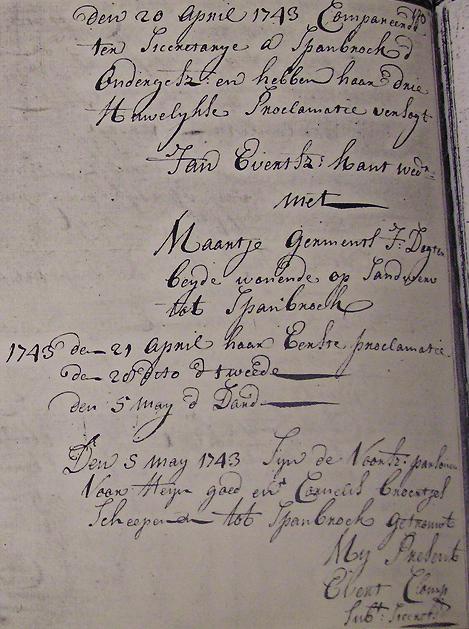 Den 20 April 1743 Compareerde
ter Secretarye a Spanbroek d
Ondergetz: en hebben haar drie
Huwelykse Proclamatie versogt
Jan Evertsz: Kant wedr:
met
Maantje Germents J: Dogter
beyde wonende op Sandwerv
tot Spanbroek
1743 de 21 April haar Eerste proclamatie
de 28 dito d tweede
den 5 may d Dard
Den 5 may 1743 Sijn de Voorsz: parsonen
Voor Heyn goed en Cornelis Broertjes
Scheepen tot Spanbroek getrouwt
My Present
Evert Clomp
Subt: Secrets